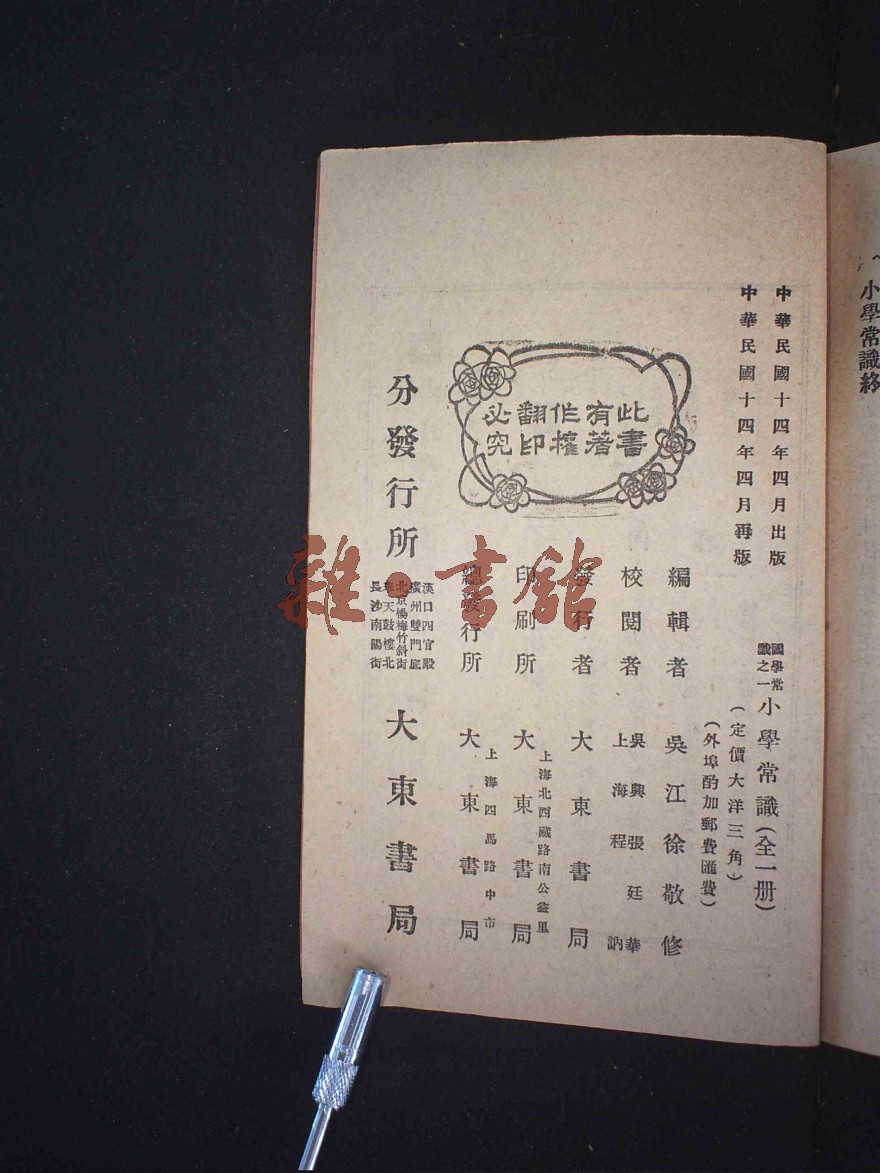 小學常識終
中華民國十四年四月出版
中華民國十四年四月再版
國學常識之一
小學常識(全一册)
(定價大洋三角)
(外埠酌加郵費匯費)
此書有著作權翻印必究
編輯者 吳江徐敬修
校閱者 吳興張廷華
上海程訥
發行者 大東書局
印刷所 上海北西藏路南公益里
大東書局
總發行所 上海四馬路中市
大東書局
分發行所 漢口四官殿
廣州雙門底
北京楊梅竹斜街
奉天鼓樓北
長沙南陽街
大東書局
雜·書館